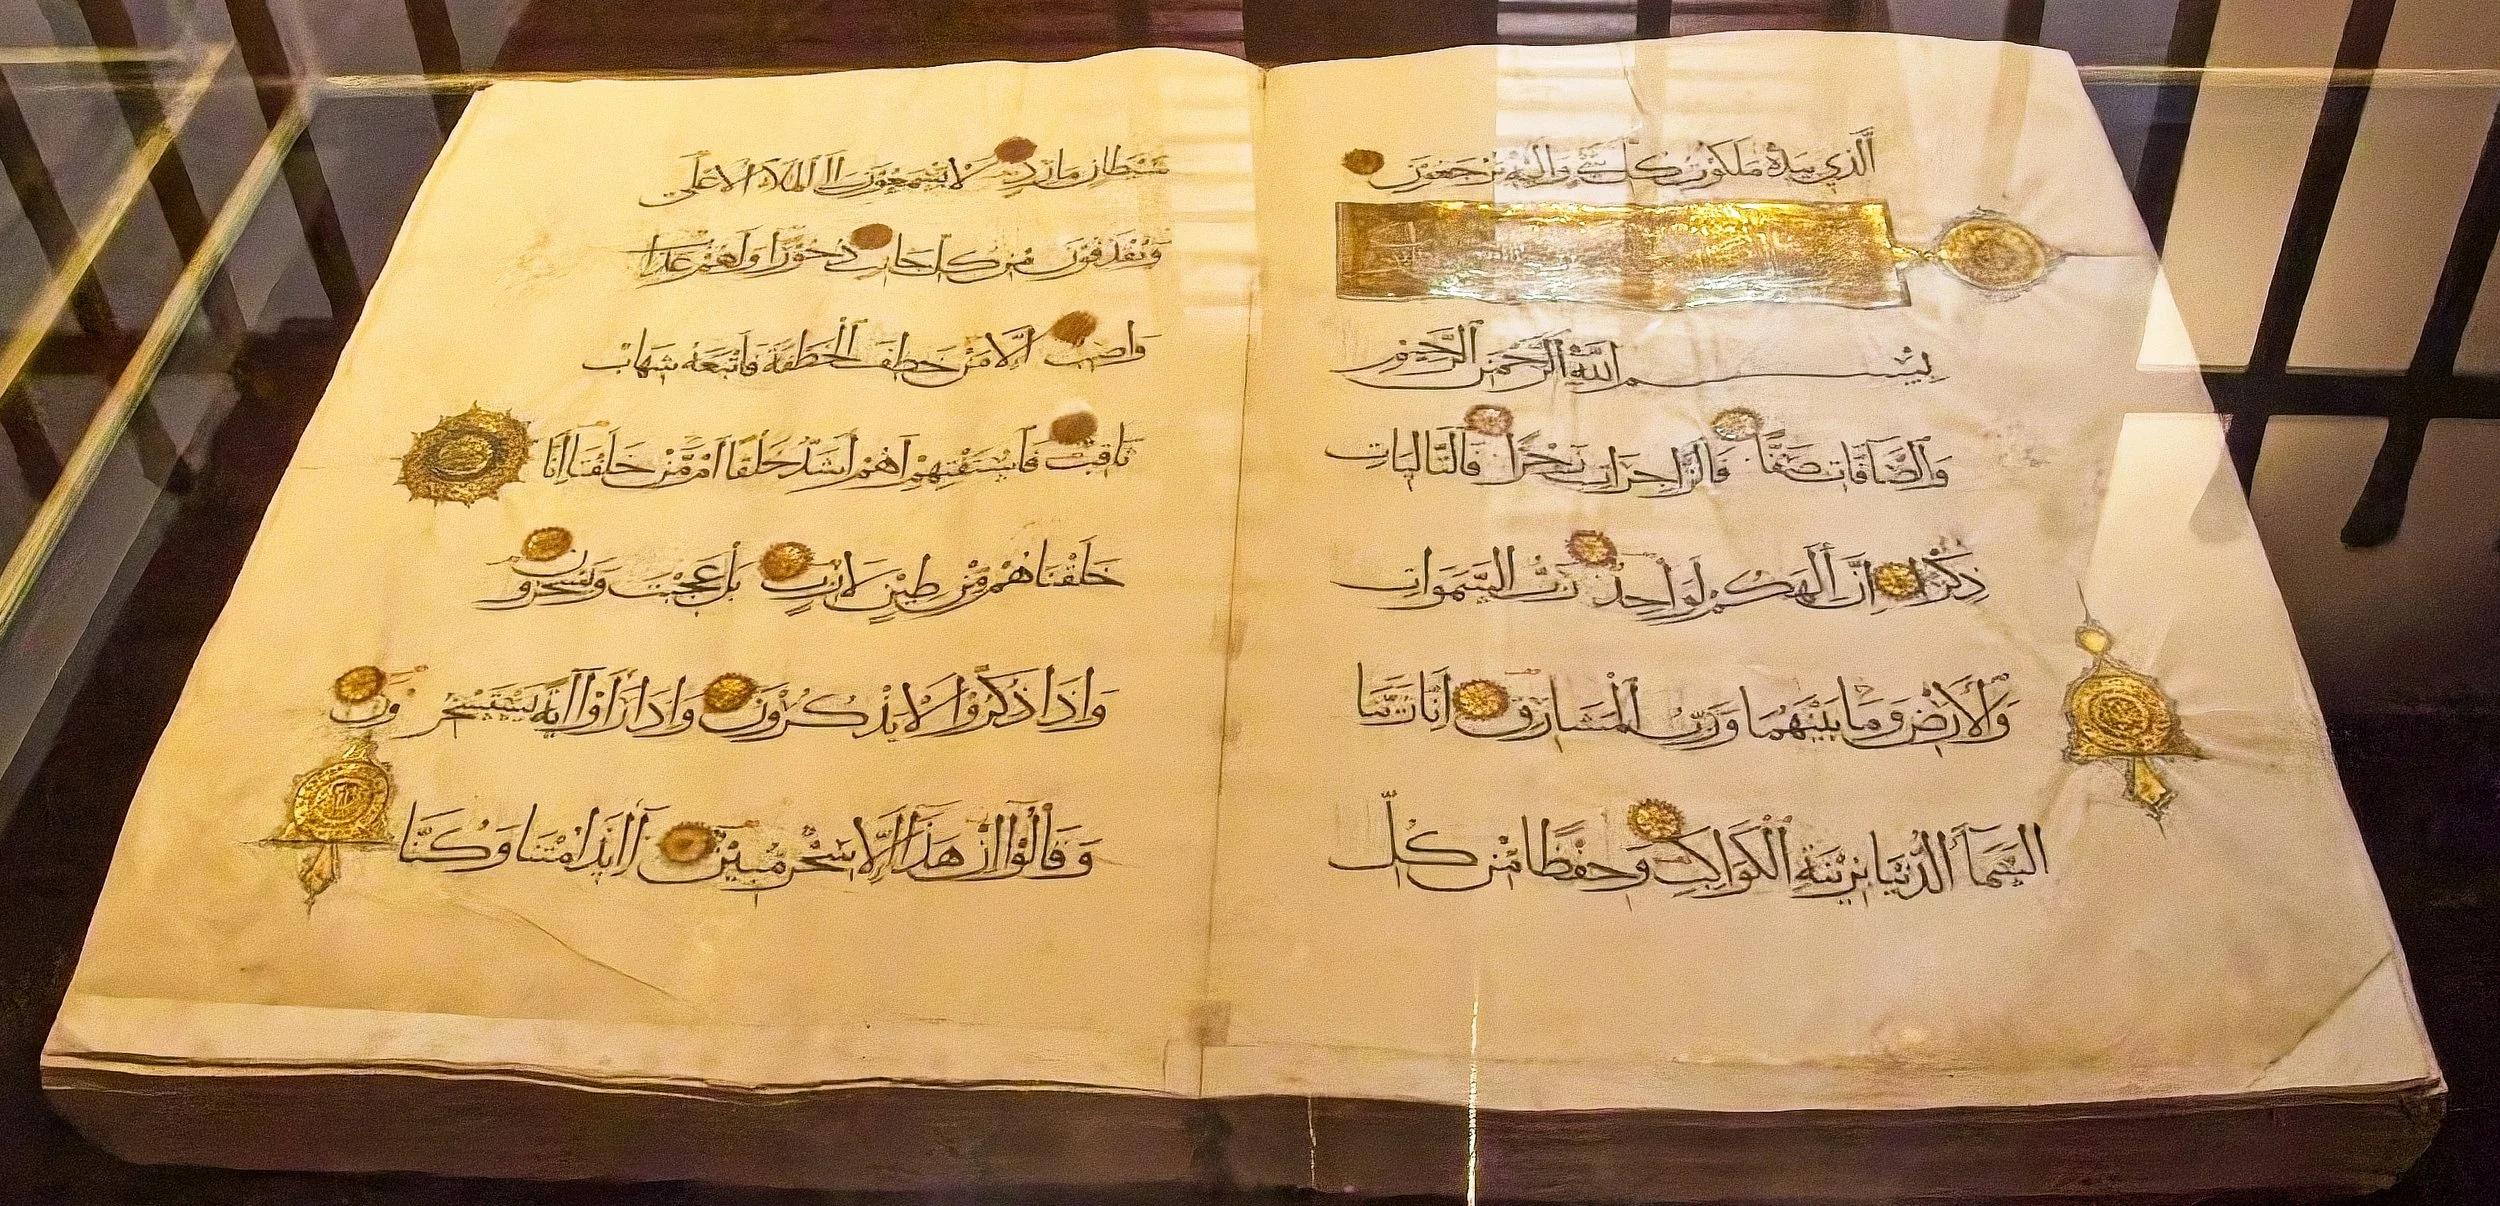 الَّذِي بِيَدِهِ مَلَكُوتُ كُلِّ شَيْءٍ وَإِلَيْهِ تُرْجَعُونَ
بِسْمِ اللَّهِ الرَّحْمَنِ الرَّحِيمِ
وَالصَّافَّاتِ صَفًّا فَالزَّاجِرَاتِ زَجْرًا فَالتَّالِيَاتِ
ذِكْرًا إِنَّ إِلَهَكُمْ لَوَاحِدٌ رَبُّ السَّمَوَاتِ
وَالْأَرْضِ وَمَا بَيْنَهُمَا وَرَبُّ الْمَشَارِقِ إِنَّا زَيَّنَّا
السَّمَاءَ الدُّنْيَا بِزِينَةٍ الْكَوَاكِبِ وَحِفْظًا مِنْ كُلِّ
شَيْطَانٍ مَارِدٍ لَا يَسَّمَّعُونَ إِلَى الْمَلَإِ الْأَعْلَى
وَيُقْذَفُونَ مِنْ كُلِّ جَانِبٍ دُحُورًا وَلَهُمْ عَذَابٌ
وَاصِبٌ إِلَّا مَنْ خَطِفَ الْخَطْفَةَ فَأَتْبَعَهُ شِهَابٌ
ثَاقِبٌ فَاسْتَفْتِهِمْ أَهُمْ أَشَدُّ خَلْقًا أَمْ مَنْ خَلَقْنَا إِنَّا
خَلَقْنَاهُمْ مِنْ طِينٍ لَازِبٍ بَلْ عَجِبْتَ وَيَسْخَرُونَ
وَإِذَا ذُكِّرُوا لَا يَذْكُرُونَ وَإِذَا رَأَوْا آيَةً يَسْتَسْخِرُونَ
وَقَالُوا إِنْ هَذَا إِلَّا سِحْرٌ مُبِينٌ أَإِذَا مِتْنَا وَكُنَّا